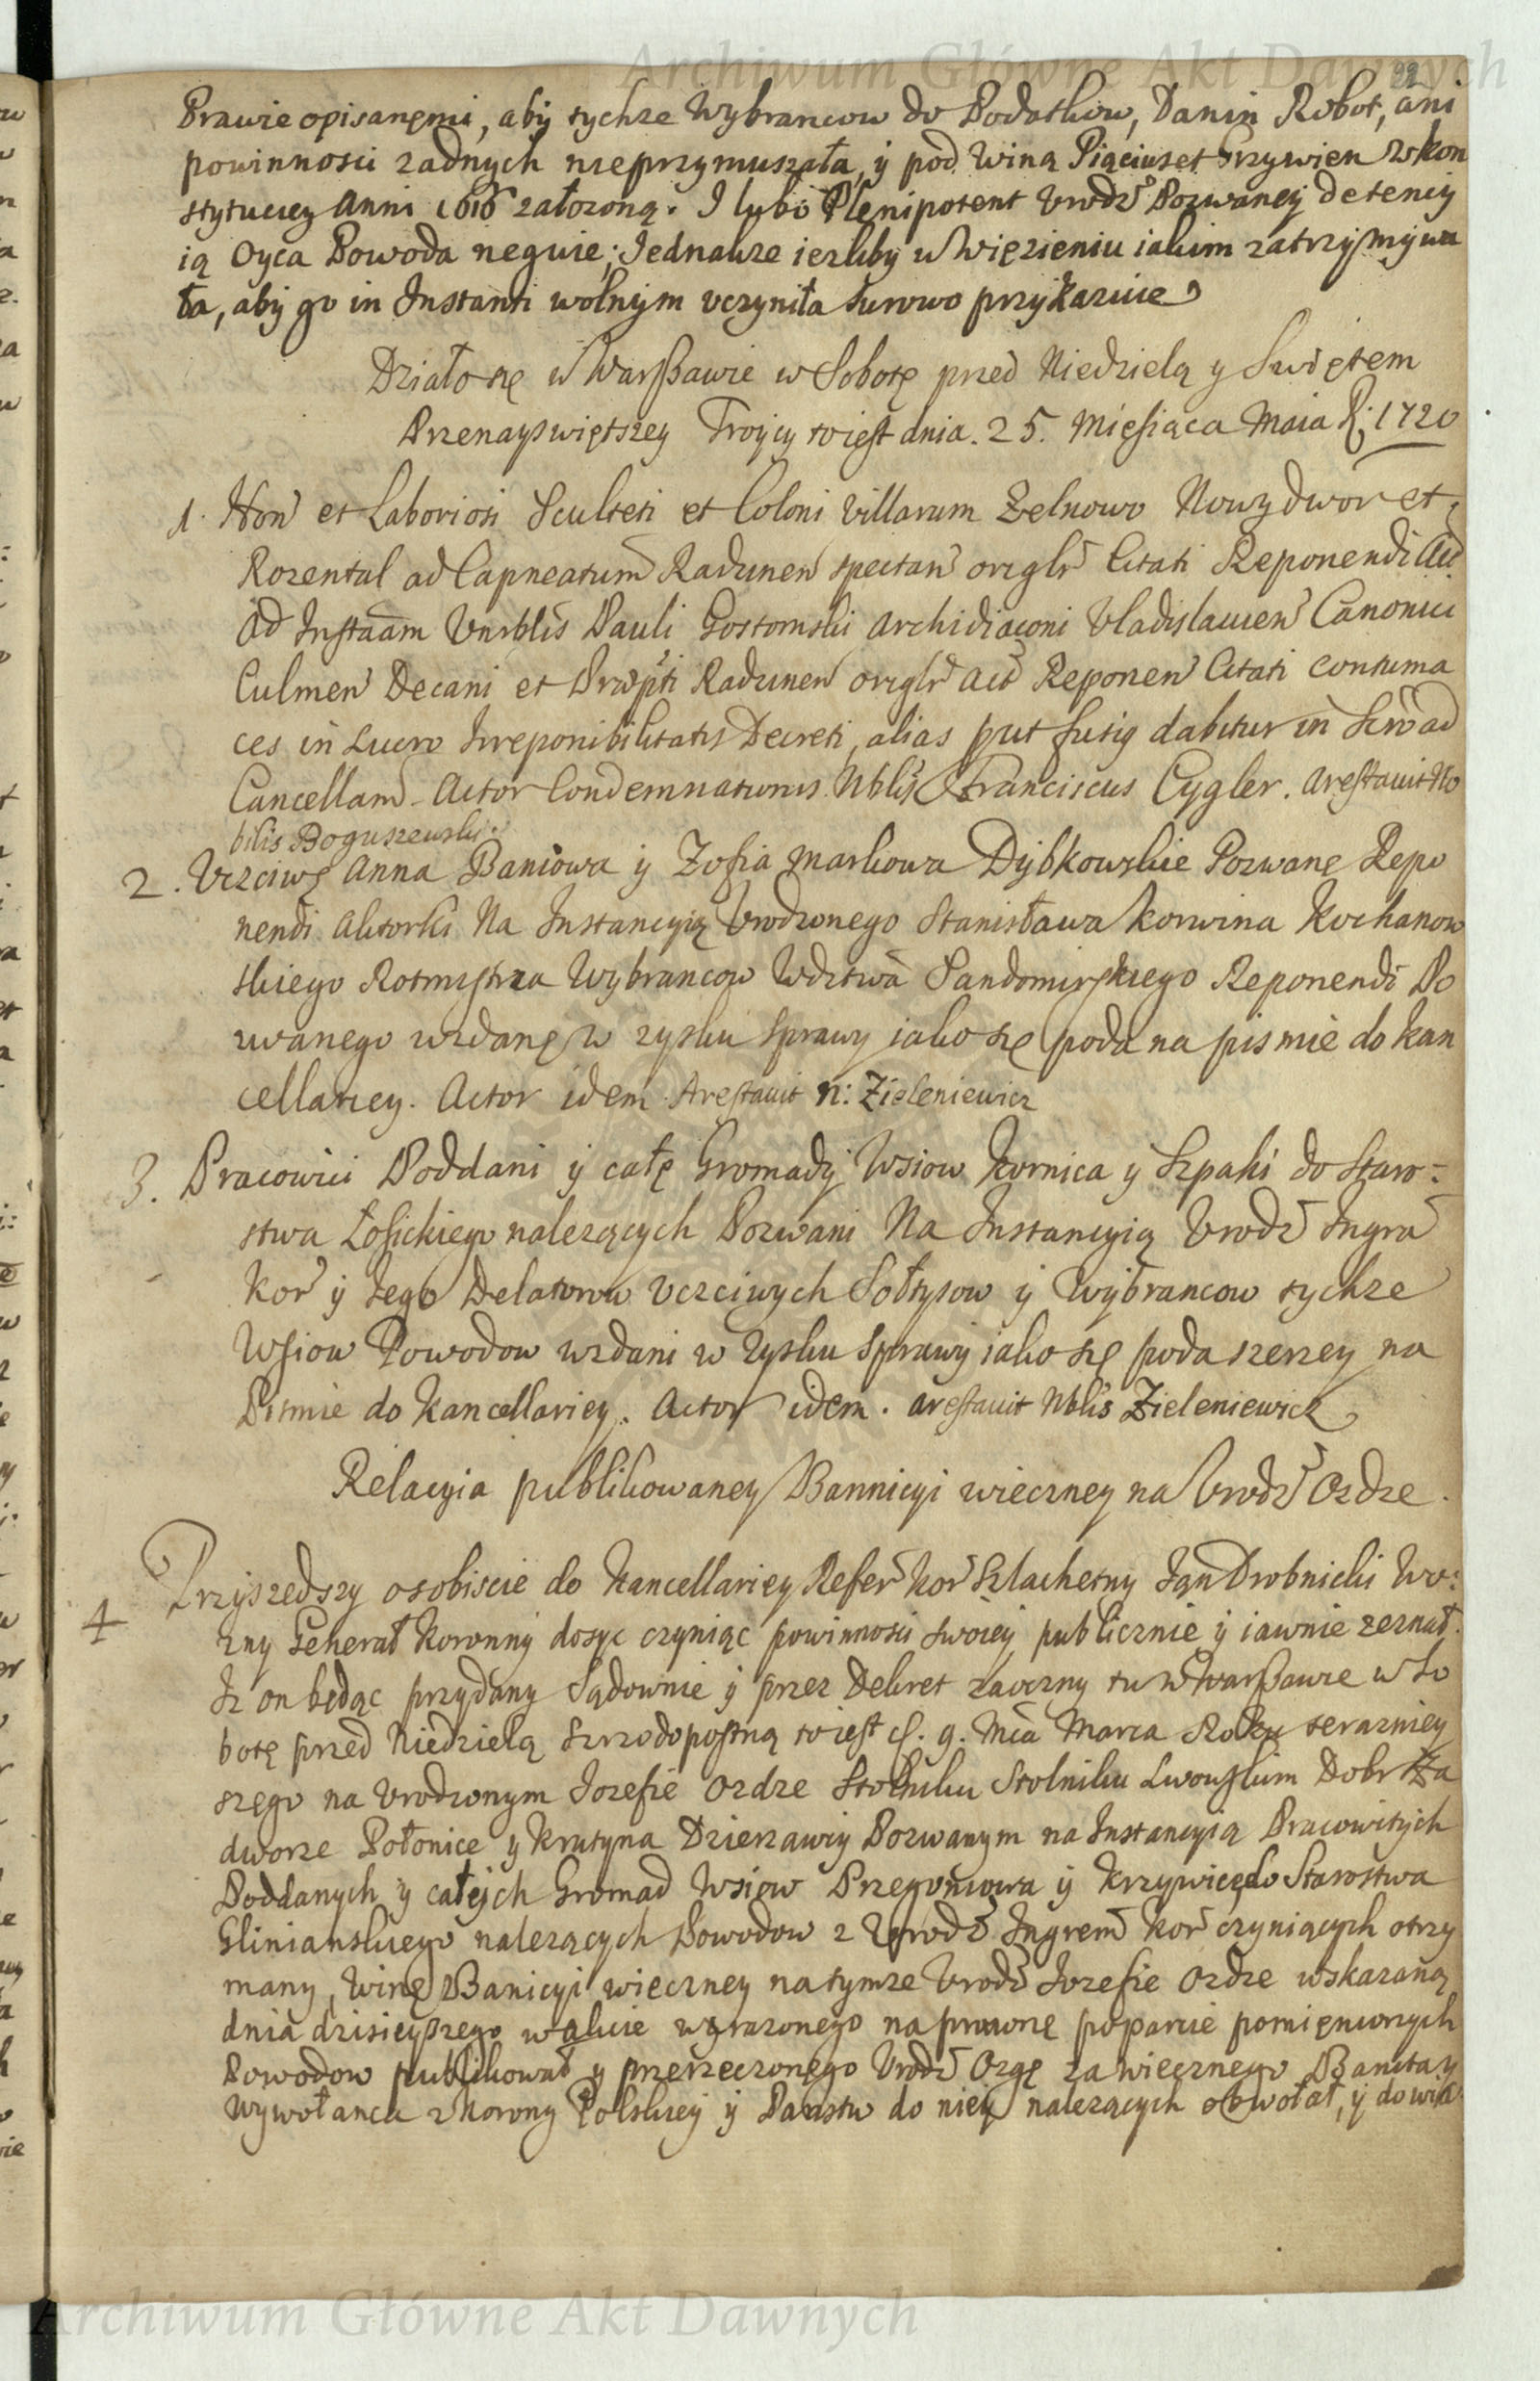 Archiwum Główne Akt Dawnych
Prawie opisanemi, aby tychze Wybrancow do Podatkow, Danin Robot, ani
powinnosci zadnych nieprzymuszała, y pod winą Piąciuset Grzywien w kon
stytuciey Anni 1616 załozoną. I lubo Plenipotent Vrodź Pozwaney detency
ią Oyca Powoda neguie; Jednakze iezliby w Więzieniu iakim zatrzymywa
ła, aby go in Instanti wolnym uczyniła surowo przykazuie
Działo się w Warszawie w Sobotę przed Niedzielą y Swiętem
Przenayswiętszey Troycy to iest dnia. 25. Miesiąca Maia R. 1720
1. Hon et Laboriosi Sculteti et Coloni Villarum Zelnowo Nowydwor et
Rozental ad Capneatum Radzinen spectan origlr Citati Reponendi Act
Ad Instaam Vnrblis Pauli Gostomski Archidiaconi Vladislavien Canonici
Culmen Decani et Præpti Radzinen origlr Act Reponen Citati contuma
ces in Lucro Irreponibilitatis Decreti, alias put fusig dabitur in Scro ad
Cancellam. Actor Condemnationis Nblis Franciscus Cygler. Arestavit No
bilis Boguszewski.
2. Vczciwe Anna Baniowa y Zofia Markowa Dybkowskie Pozwane Repo
nendi Aktorki Na Instancyią Vrodzonego Stanisława Korwina Kochanow
skiego Rotmistrza Wybrancow Wdztwa Sandomirskiego Reponendi Po
zwanego wzdane w zysku sprawy iako się poda na pismie do kan
cellariey. Actor idem. Arestavit N: Zieleniewicz
3. Pracowici Poddani y całe Gromady Wsiow Kornica y Szpaki do Staro=
stwa Łosickiego nalezących Pozwani Na Instancyią Vrodź Ingra
Kor y Jego Delatorow Vczciwych Sołtysow y Wybrancow tychze
Wsiow Powodow wzdani w zysku sprawy iako się poda szerzey na
Pismie do Kancellariey. Actor idem. Arestavit Nblis Zieleniewicz
Relacyia publikowaney Bannicyi wieczney na Vrodź Ozdze.
4 Przyszedszy osobiscie do Kancellariey Refer Kor Szlachetny Jan Drobnicki Wo:
zny Generał Koronny dosyc czyniąc powinnosci swoiey publicznie y iawnie zeznał.
Iz on będąc przydany Sądownie y przez Dekret zaoczny tu w Warszawie w So
botę przed Niedzielą Szrzodopostną to iest d. 9. Mca Marca Roku terazniey
szego na Vrodzonym Jozefie Ozdze Stolniku Lwowskim Dobr
dworze Połonice y Krutyna Dzierzawcy Pozwanym na Instancyią Pracowitych
Poddanych y całych Gromad Wsiow Przegonowa y Krzywice do Starostwa
Glinianskiego nalezących Powodow z Vrodź Ingrem Kor czyniących otrzy
many, Winę Banicyi wieczney na tymze Vrodź Jozefie Ozdze wskazaną
dnia dzisieyszego w akcie wyrazonego na prawne poparcie pomienionych
Powodow publikował y przerzeczonego Vrodź Ozgę za wiecznego Banitę y
Wywołanca z Korony Polskiey y Panstw do niey nalezących obwołał, y do wia
Archiwum Główne Akt Dawnych